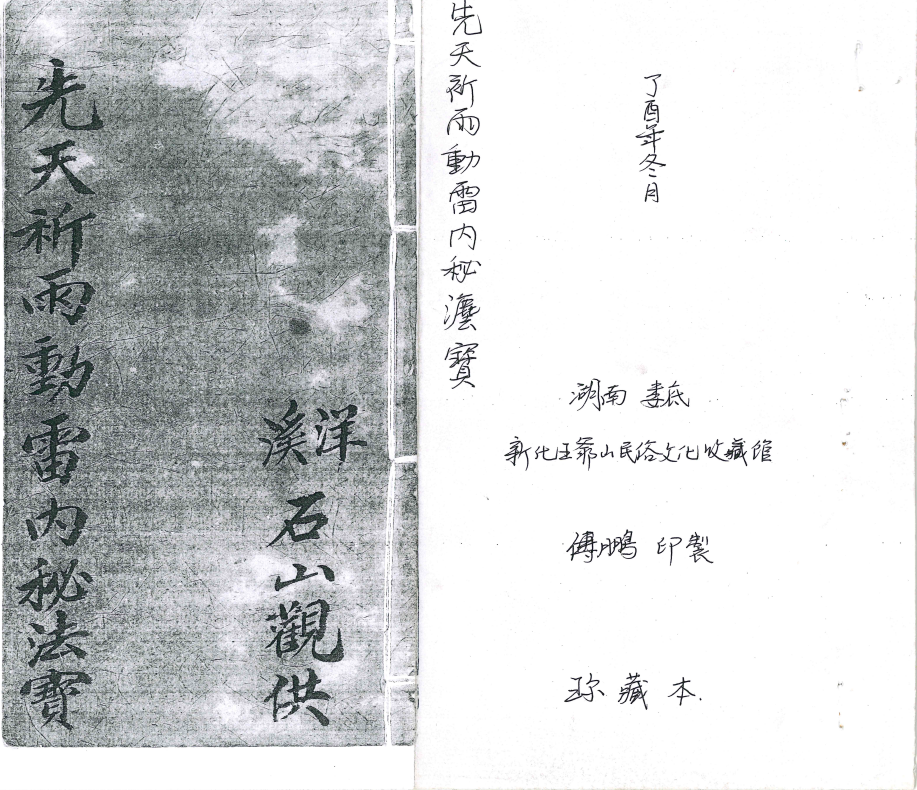 先天祈雨動雷内秘法寶
洋溪
石山觀供
先天祈雨動雷内秘灋寶
丁酉年冬月
湖南 娄底
新化王爺山民俗文化收藏馆
傅鹏 印製
珎藏本.